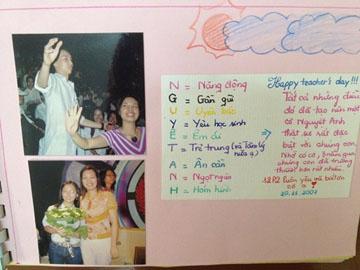 N = Năng động
G = Gần gũi
U = Uyên bác
Y = Yêu học sinh
Ê = Êm ái
T = Trẻ trung (và Tâm lý nữa ạ)
A = Ân cần
N = Ngọt ngào
H = Hóm hỉnh
Happy teacher's day!!!
Tất cả những điều
đó đã tạo nên một
cô Nguyệt Anh
thật sự rất đặc
biệt với chúng con
Nhờ có cô, 3 năm qua
chúng con đã trưởng
thành hơn rất nhiều.
12P2 luôn yêu và biết ơn
cô ạ
20.11.2007